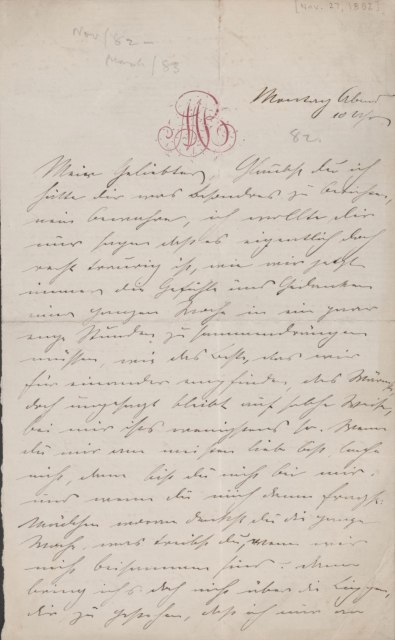 [Nov. 27, 1882]
Nov / 82 —
March / 83
Montag Abend
10 Uhr
82.
Mein Geliebter, Glaubst du ich
hätte dir was besonderes zu berichten,
nein bewahre, ich wollte dir
nur sagen daß es eigentlich doch
recht traurig ist, wie wir jetzt
immer die Gefühle und Gedanken
einer ganzen Woche in ein paar
enge Stunden zusammendrängen
müssen, wie das beste, das wir
für einander empfinden, das
doch ungesagt bleibt auf solche Weise,
bei mir ists wenigstens so. Wenn
du mir am meisten lieb bist,
nicht, dann bist du nicht bei mir.
und wenn du mich dann fragst.
Mädchen woran denkst du die ganze
Woche, was treibst du, wenn wir
nicht beisammen sind? dann
bring ichs doch nicht über die Lippen,
dir zu gestehen, daß ich nur an